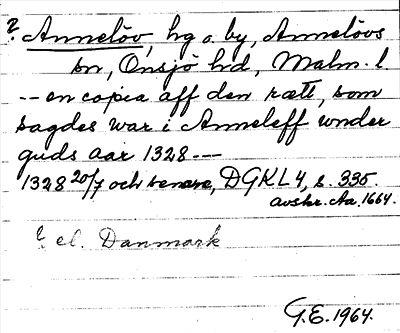 ? Annelöv, hg o. by, Annelövs
sn, Onsjö hd, Malm. l
-- en copia aff den rætt, som
sagdes war i Anneleff wnder
guds aar 1328 ---
1328 20/7 och senare, DGKL 4, s. 335.
avskr. ca. 1664.
? el. Danmark
G.E. 1964.